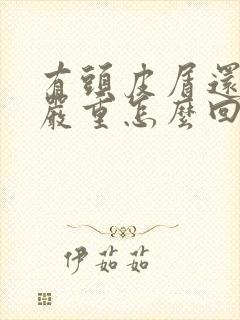 有頭皮屑還
嚴重怎麼回
伊茹茹